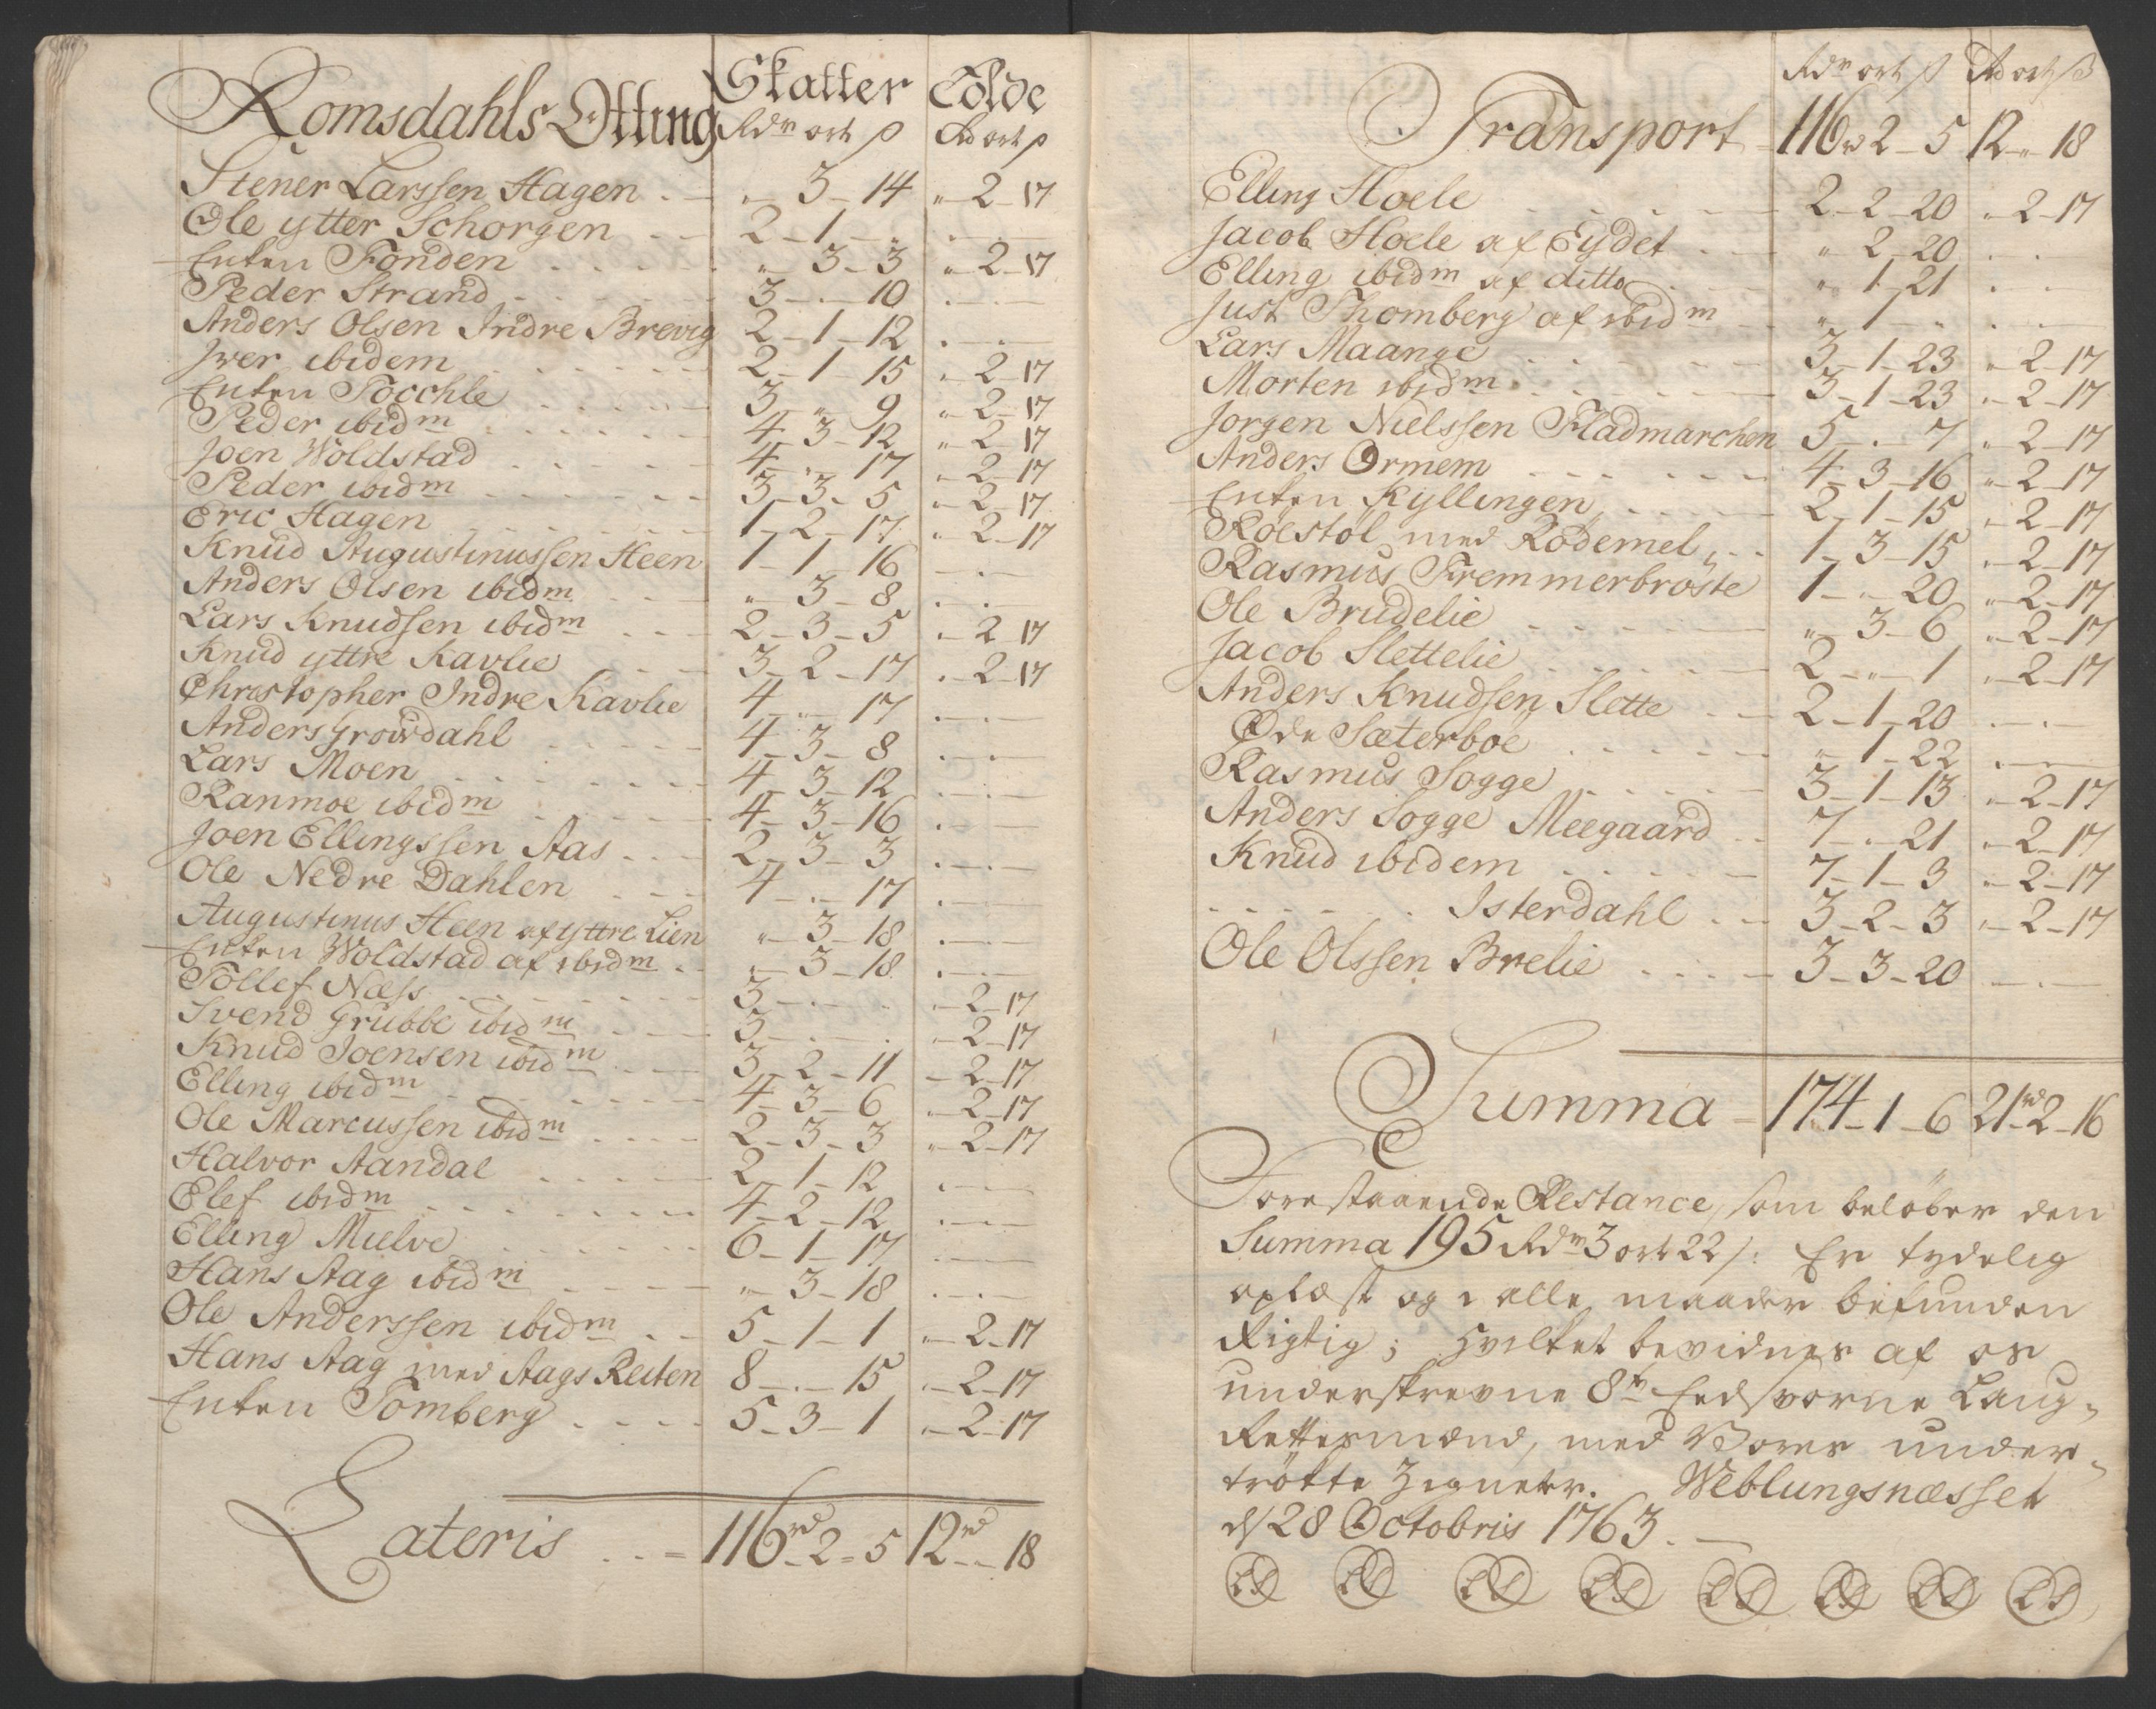 Romsdahls Otting Skatter Tolde
Rdr ort s Rd ort s
Stener Larssen Hagen . - „ 3 - 14 „ - 2 - 17
Ole ytter Schorgen - - 2 - 1 - „ . - . -
Enken Fonden . . . . „ - 3 - 3 „ - 2 - 17
Peder Strand . . . . 3 - . - 10 . - . -
Anders Olsen Indre Brevig 2 - 1 - 12 . - . -
Iver ibidem . . . . 2 - 1 - 15 „ - 2 - 17
Enken Tocchle . . . . 3 - „ - 9 „ - 2 - 17
Peder ibidm . . . . 4 - 3 - 12 „ - 2 - 17
Joen Woldstad . . . . 4 - . - 17 „ - 2 - 17
Peder ibidm . . . . 3 - 3 - 5 „ - 2 - 17
Eric Hagen . . . . 1 - 2 - 17 „ - 2 - 17
Knud Augustinussen Heen 1 - 1 - 16 - . -
Anders Olsen ibidm . . „ - 3 - 8 . - . -
Lars Knudsen ibidm . . 2 - 3 - 5 „ - 2 - 17
Knud yttre Kavlie . . 3 - 2 - 17 „ - 2 - 17
Christopher Indre Kavlie 4 - „ - 17 . - . -
Anders Grøvdahl . . . . 4 - 3 - 8 . - . -
Lars Moen . . . . 4 - 3 - 12 . - . -
Ranmoe ibidm . . . . 4 - 3 - 16 . - . -
Joen Ellingssen Aas . . 2 - 3 - 3 . - . -
Ole Nedre Dahlen . . . 4 - . - 17 . - . -
Augustinus Heen af yttre Lien „ - 3 - 18 . - . -
Enken Woldstad af ibidm . „ - 3 - 18 . - . -
Tollef Næss . . . . 3 - . - . „ - 2 - 17
Svend Grubbe ibidm . . 3 - . - . „ - 2 - 17
Knud Joensen ibidm . . 3 - 2 - 11 - 2 - 17
Elling ibidm . . . . 4 - 3 - 6 „ - 2 - 17
Ole Marcussen ibidm . . 2 - 3 - 3 „ - 2 - 17
Halvor Aandal . . . . 2 - 1 - 12 . - . -
Elef ibidm . . . . 4 - 2 - 12 . - . -
Elling Mielve . . . . 6 - 1 - 17 . - . -
Hans Aag ibidm . . . . „ - 3 - 18 . - . -
Ole Anderssen ibidm . . 5 - 1 - 1 „ - 2 - 17
Hans Aag med Aags Reiten 8 - . - 15 „ - 2 - 17
Enken Tomberg . . . . 5 - 3 - 1 „ - 2 - 17
Lateris . . = 116rd - 2 = 5 12rd - „ - 18
Rdr ort s Rd ort s
Transport - 116rd 2 - 5 12 - „ - 18
Elling Hoele . . . . 2 - 2 - 20 „ - 2 - 17
Jacob Hoele af Eydet . . „ 2 - 20 . - .
Elling ibidm af ditto . . „ 1 - 21 . .
Just Thomberg af ibidm . . „ 1 - . . - . -
Lars Maange . . . . 3 - 1 - 23 „ - 2 - 17
Morten ibidm . . . . 3 - 1 - 23 „ - 2 - 17
Jorgen Nielssen Fladmarchen 5 - . 7 „ - 2 - 17
Anders Ormem . . . . 4 - 3 - 16 „ - 2 - 17
Enken Kyllingen . . . . 2 - 1 - 15 „ - 2 - 17
Roestol med Rødemel . . 1 - 3 - 15 „ - 2 - 17
Rasmus Fremmerbrøste 1 - „ - 20 „ - 2 - 17
Ole Brudelie . . . . „ 3 - 6 „ - 2 - 17
Jacob Slettelie . . . . 2 - „ - 1 „ - 2 - 17
Anders Knudsen Slette . . 2 - 1 - 20 - . -
Øde Sæterboe . . . . „ - 1 - 22 . - . -
Rasmus Sogge . . . . 3 - 1 - 13 „ - 2 - 17
Anders Sogge Meegaard . 7 - . - 21 „ - 2 - 17
Knud ibidem . . . . 7 - 1 - 3 „ - 2 - 17
. . . . . Isterdahl . . 3 - 2 - 3 „ - 2 - 17
Ole Olssen Brelie . . . . 3 - 3 - 20 - . -
Summa - 174 - 1 - 6 21rd 2 - 16
Forestaaende Restance, som beløber den
Summa 195 Rdr 3 ort 22 s: Er tydelig
oplæst og i alle maader befunden
Rigtig; Hvilket bevidnes af os
underskrevne 8te Eedsvorne Laug-
Rettesmænd, med Vores under-
trøkte Zigneter. Weblungsnæsset
d 28 Octobris 1763. -
LS LS LS LS LS LS LS LS